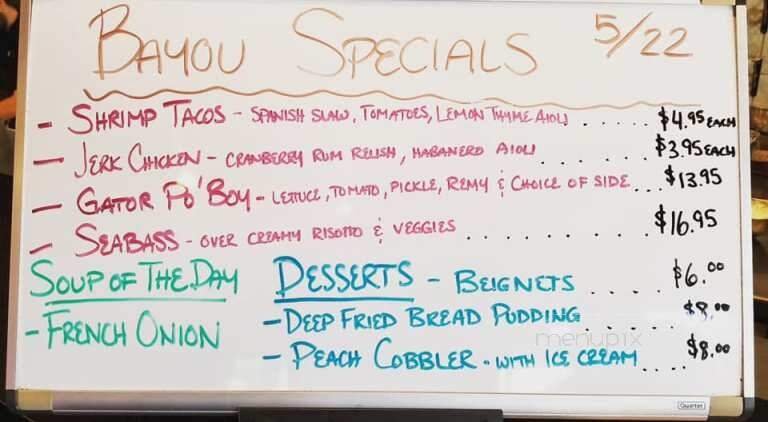 BAYOU SPECIALS 5/22
- SHRIMP TACOS - SPANISH SLAW, TOMATOES, LEMON THYME AIOLI ..... $4.95 EACH
- JERK CHICKEN - CRANBERRY RUM RELISH, HABANERO AIOLI ........ $3.95 EACH
- GATOR PO'BOY - LETTUCE, TOMATO, PICKLE, REMY & CHOICE OF SIDE... $13.95
- SEABASS - OVER CREAMY RISOTTO & VEGGIES ......... $16.95
SOUP OF THE DAY
- FRENCH ONION
DESSERTS - BEIGNETS .... $6.00
- DEEP FRIED BREAD PUDDING ...... $8.00
- PEACH COBBLER - WITH ICE CREAM .... $8.00
menupix
Quartet